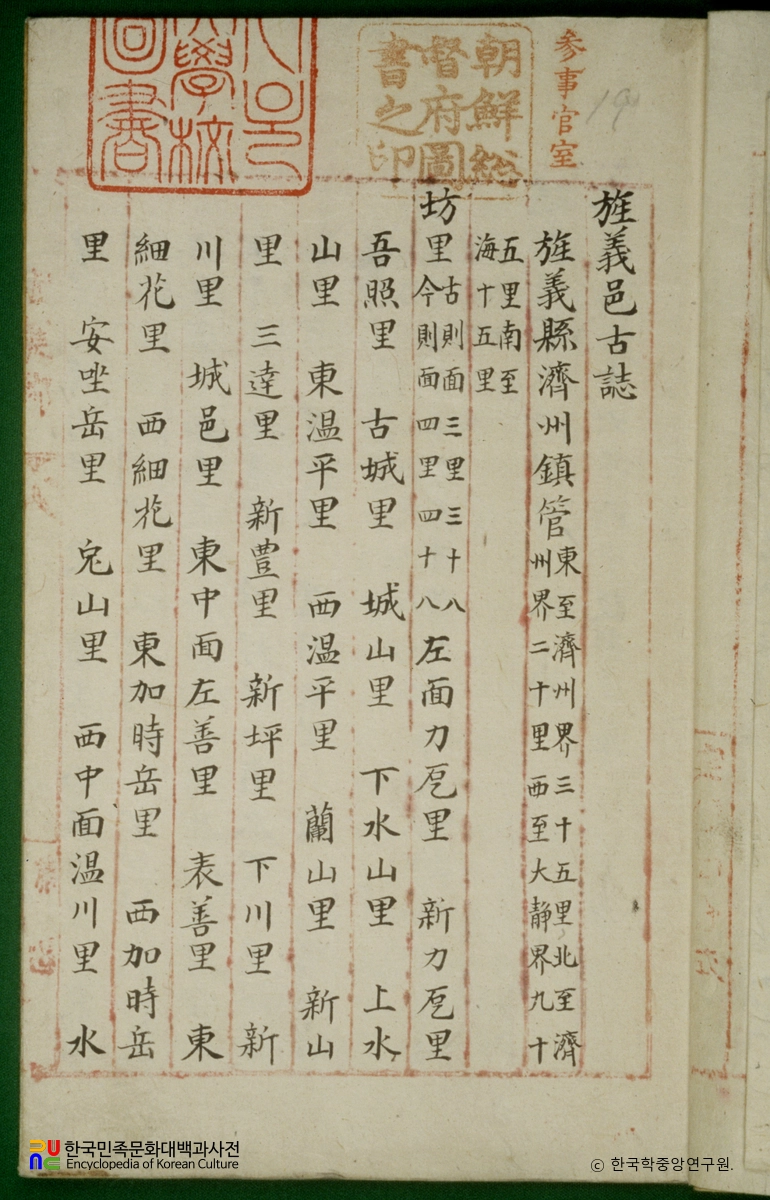 参事官室
朝鮮総
督府圖
書之印
大學校
圖書
旌義邑古誌
旌義縣濟州鎮管東至濟州界三十五里北至濟
州界二十里西至大静界九十
五里南至
海十五里
坊里古則面三里三十八
今則面四里四十八
左面力乭里 新力乭里
吾照里 古城里 城山里 下水山里 上水
山里 東温平里 西温平里 蘭山里 新山
里 三達里 新豊里 新坪里 下川里 新
川里 城邑里 東中面左善里 表善里 東
細花里 西細花里 東加時岳里 西加時岳
里 安坐岳里 兎山里 西中面温川里 水
한국민족문화대백과사전
Encyclopedia of Korean Culture
© 한국학중앙연구원.